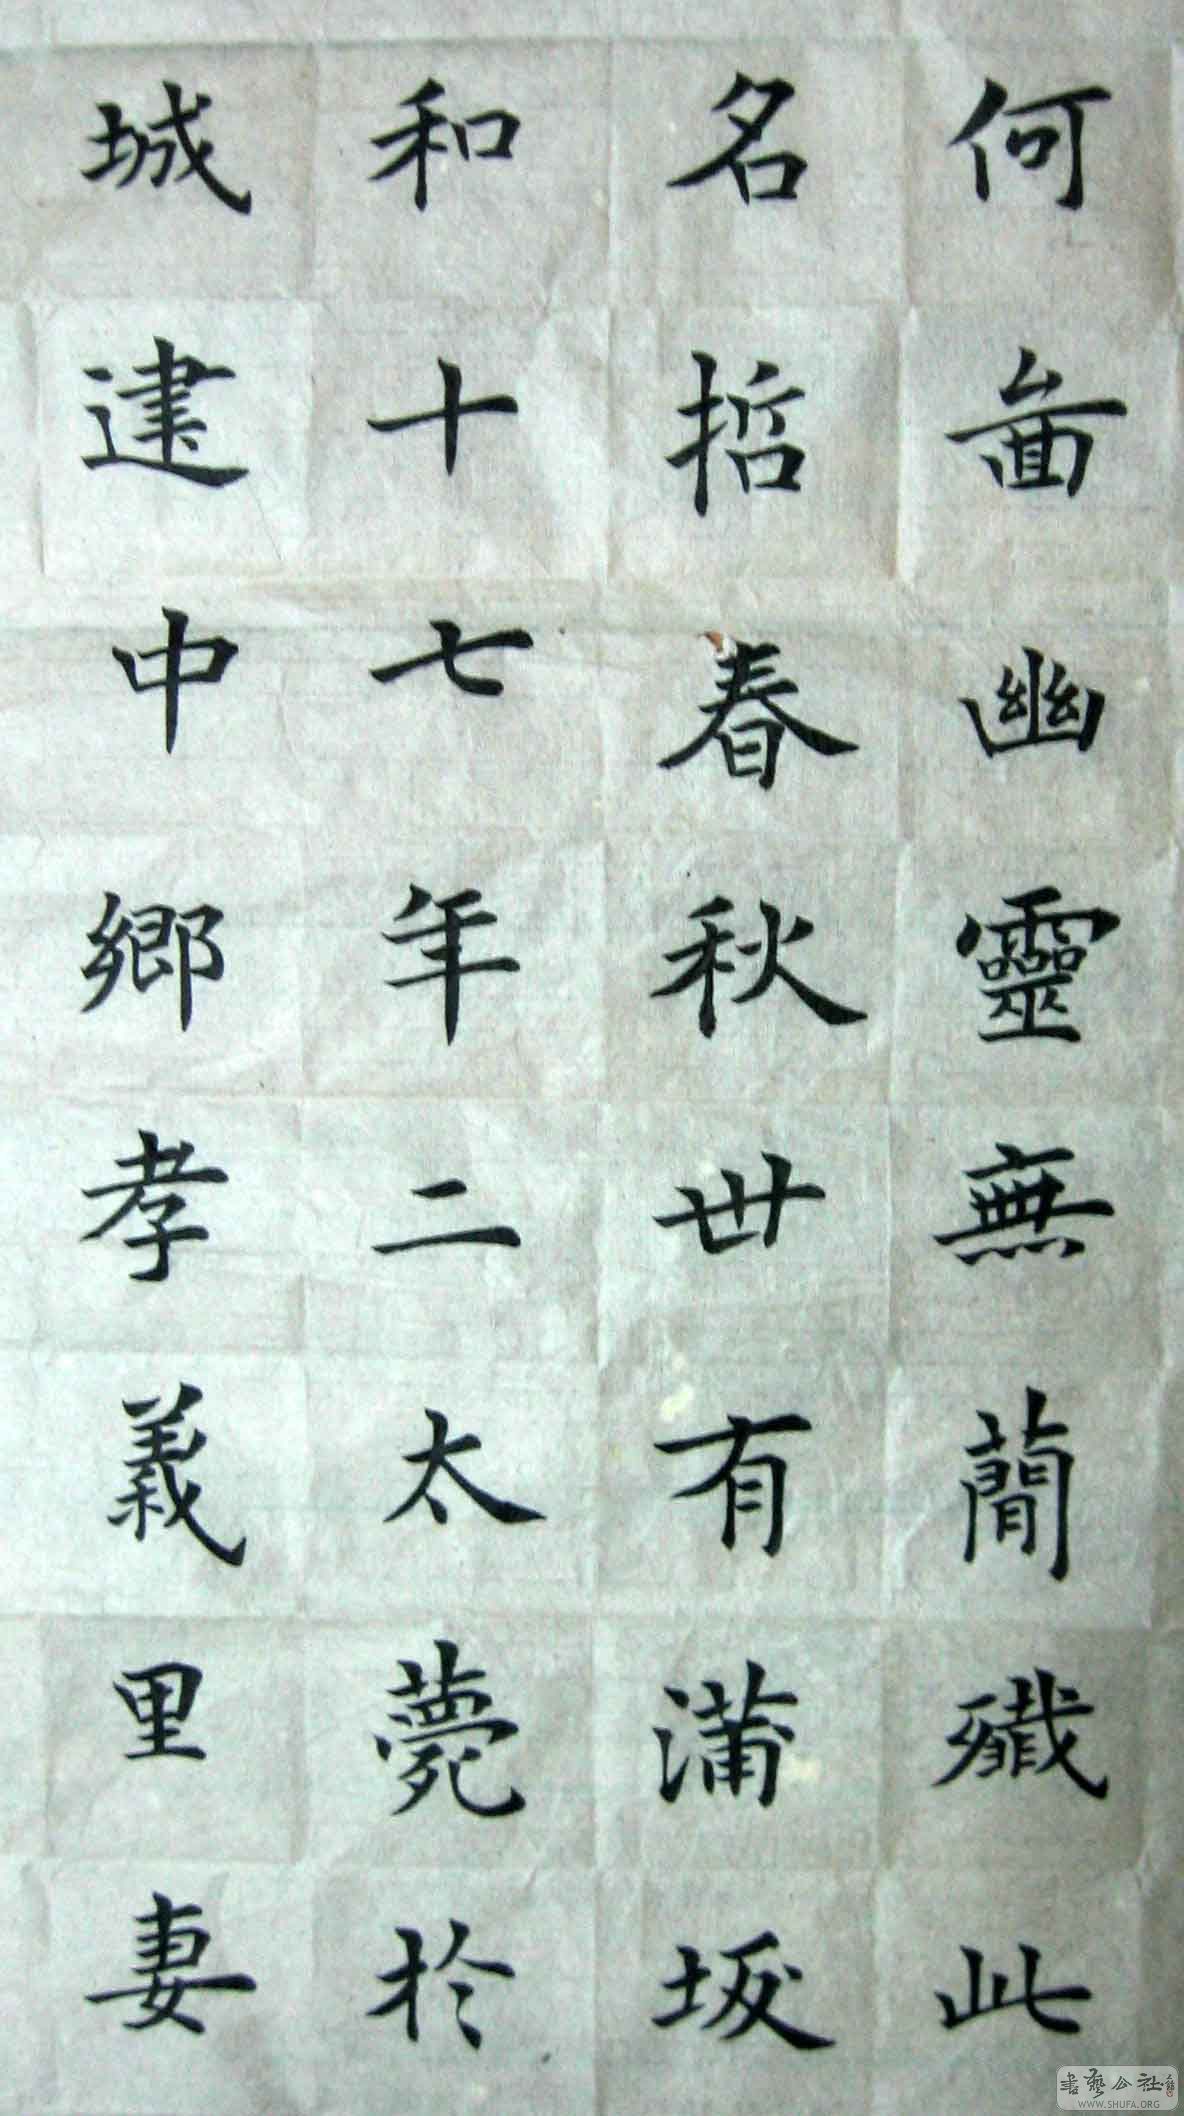 何啚幽靈無簡殲此
名哲春秋卌有蒲坂
和十七年二太薨於
城建中鄉孝義里妻
書藝公社
WWW.SHUFA.ORG